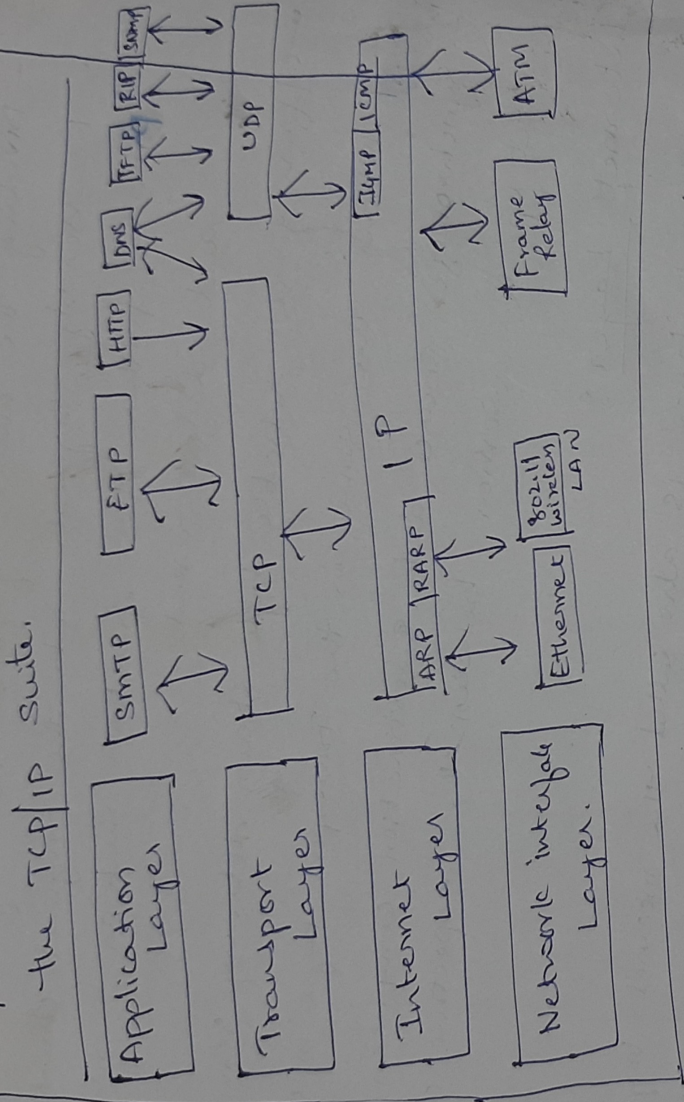 the TCP/IP Suite.
Application
Layer
SMTP
FTP
HTTP
DNS
TFTP
RIP
SNMP
Transport
Layer
TCP
UDP
Internet
Layer
ARP
RARP
IP
IGMP
ICMP
Network interface
Layer.
Ethernet
802.11
wireless
LAN
Frame
Relay
ATM